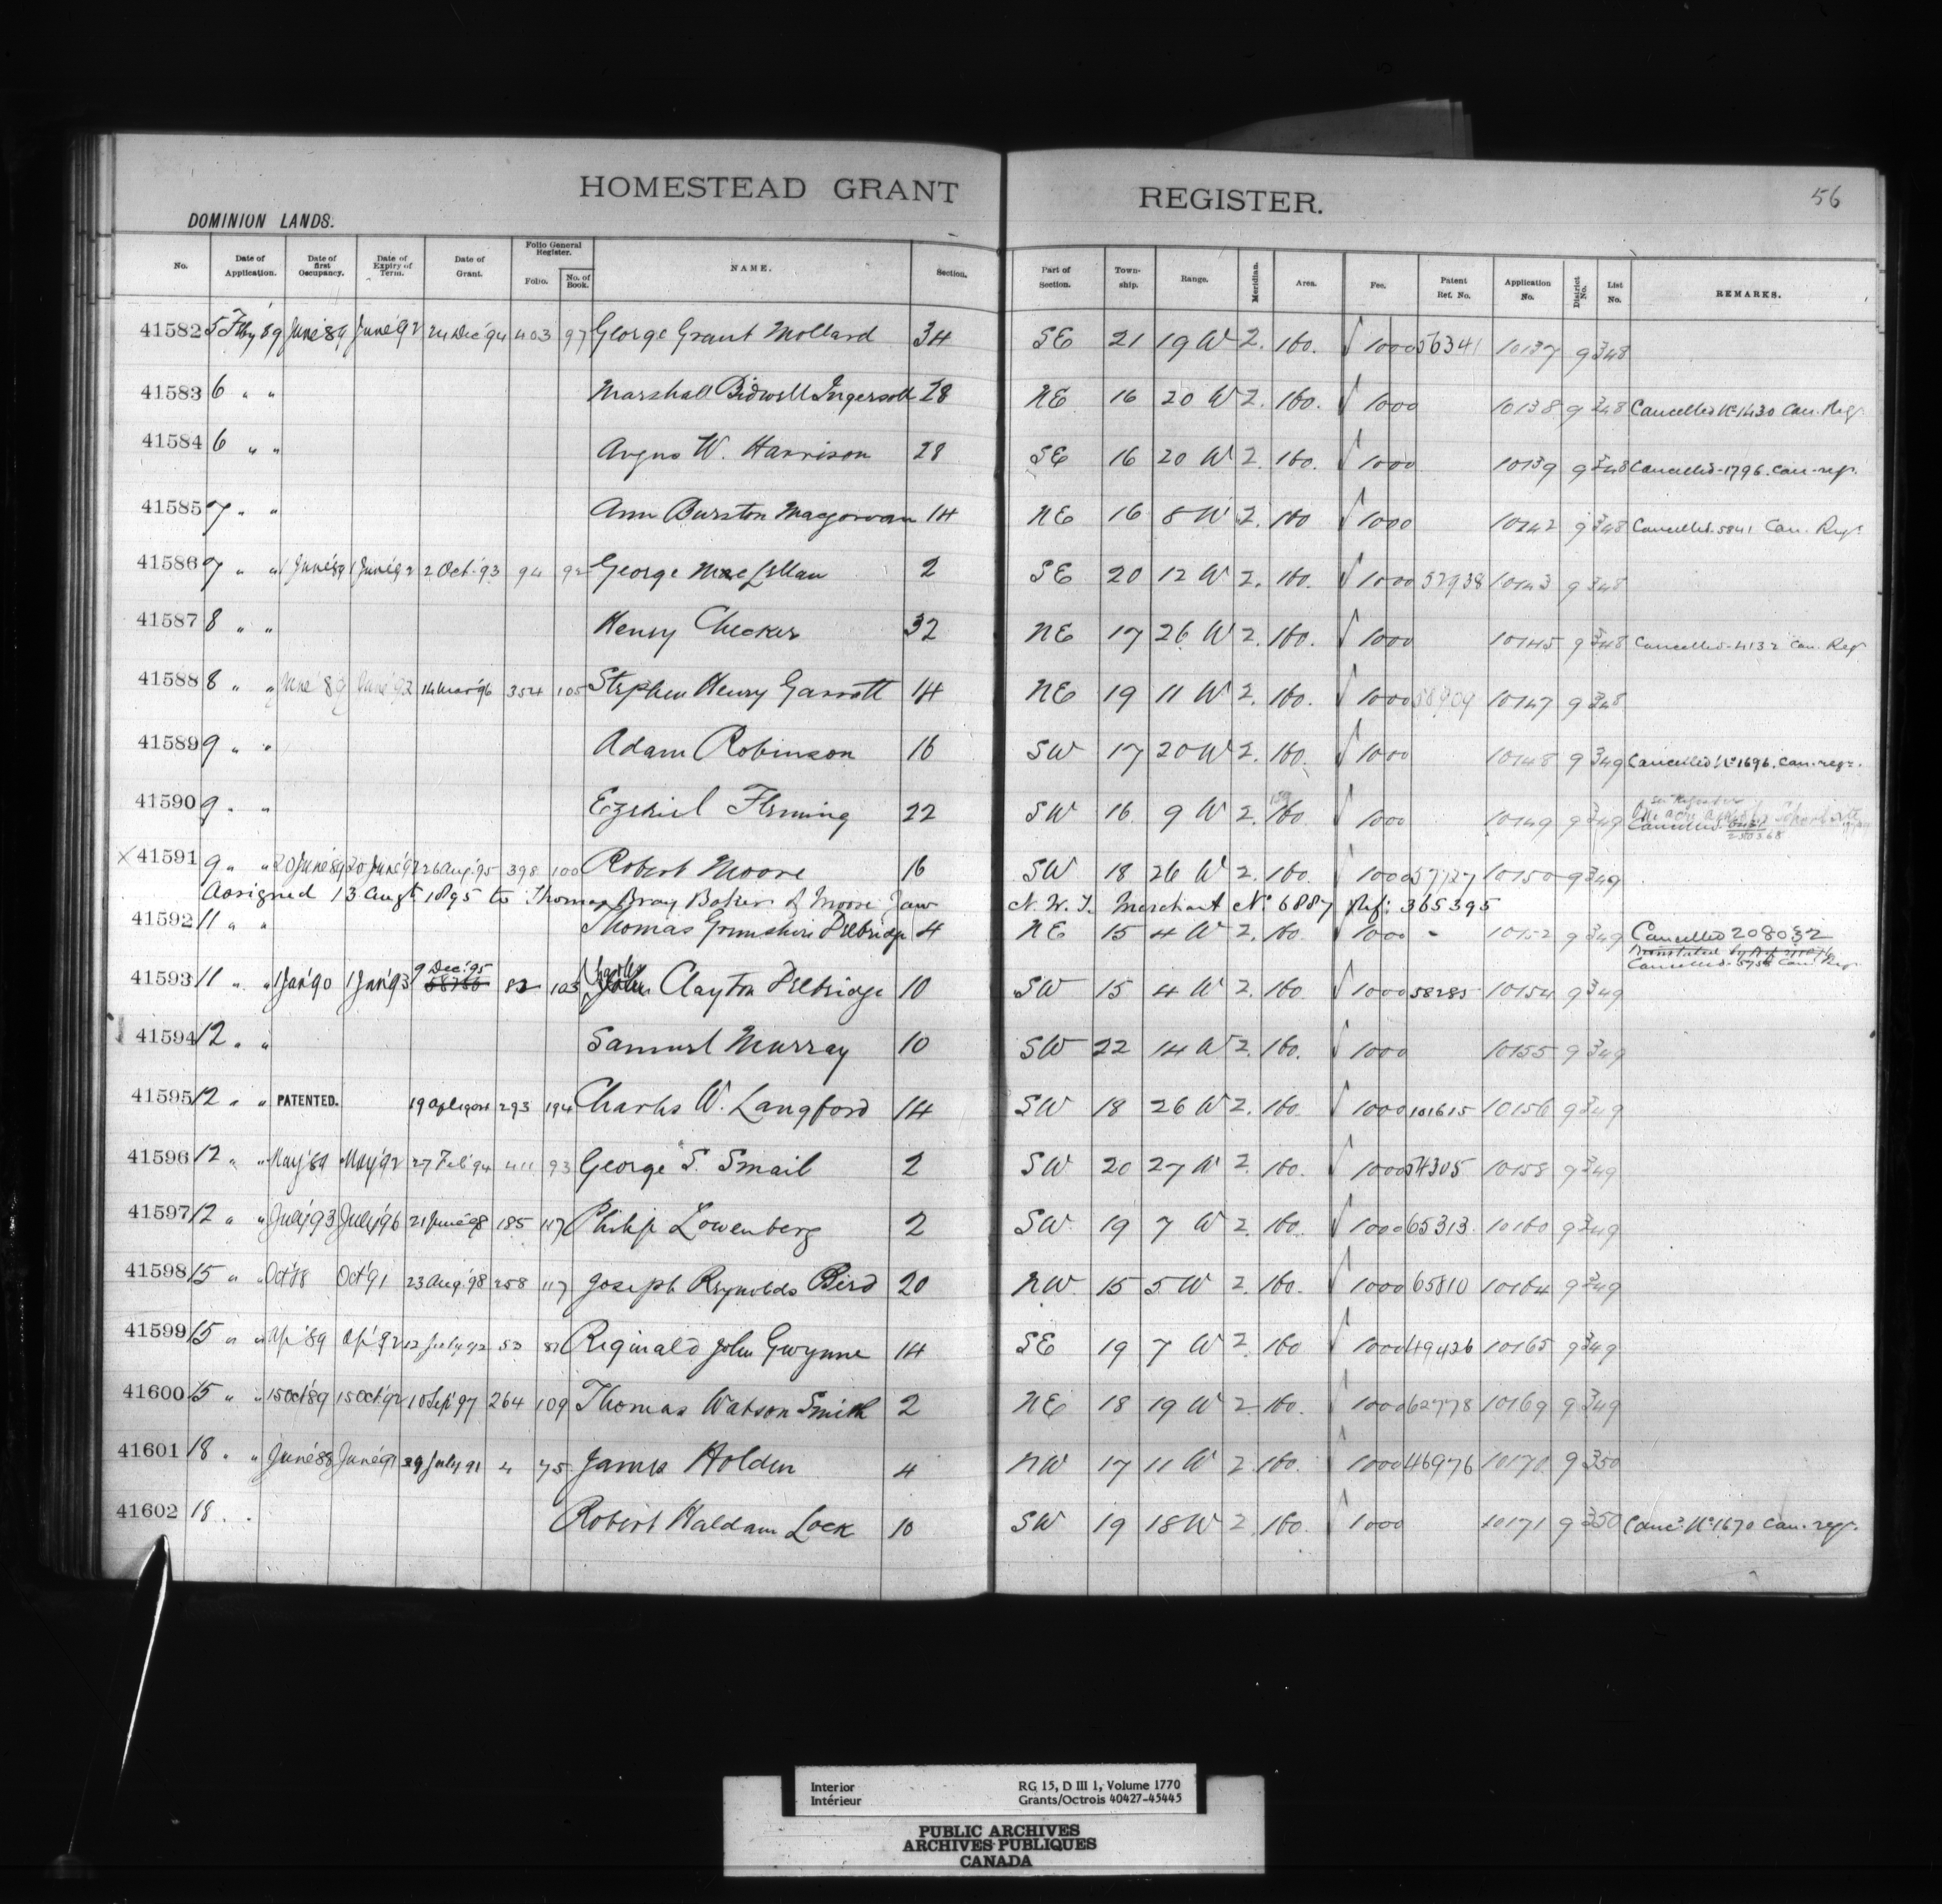 56
HOMESTEAD GRANT REGISTER.
DOMINION LANDS.
No. Date of Application. Date of first Occupancy. Date of Expiry of Term. Date of Grant. Folio General Register. Folio. No. of Book. NAME. Section. Part of Section. Township. Range. Meridian. Area. Fee. Patent Ref. No. Application No. District No. List No. REMARKS.
41582 5 Feby '89 June '89 June '92 24 Dec '94 403 97 George Grant Mollard 34 SE 21 19 W 2. 160. √ 1000 56341 10137 9 348
41583 6 " " Marshall Bidwell Ingersoll 28 NE 16 20 W 2. 160. √ 1000 10138 9 348 Cancelled No 1430 Can. Reg.
41584 6 " " Angus W. Harrison 28 SE 16 20 W 2. 160. √ 1000 10139 9 348 Cancelled-1796. Can-reg.
41585 7 " " Ann Burston Macgowan 14 NE 16 8 W 2. 160 √ 1000 10142 9 348 Cancelled. 5841 Can. Reg.
41586 7 " " 1 June '89 1 June '92 2 Oct. '93 94 92 George MacLellan 2 SE 20 12 W 2. 160. √ 1000 52938 10143 9 348
41587 8 " " Henry Checker 32 NE 17 26 W 2. 160. √ 1000 10145 9 348 Cancelled-4132 Can. Reg.
41588 8 " " June '89 June '92 14 Mar '96 354 105 Stephen Henry Garrott 14 NE 19 11 W 2. 160. √ 1000 58909 10147 9 348
41589 9 " " Adam Robinson 16 SW 17 20 W 2. 160. √ 1000 10148 9 349 Cancelled No 1696. Can. reg.
41590 9 " " Ezekiel Fleming 22 SW 16 9 W 2. 160. √ 1000 10149 9 349 Cancelled
× 41591 9 " " 20 June '89 20 June '92 26 Aug. '95 398 100 Robert Moore 16 SW 18 26 W 2. 160. √ 1000 57727 10150 9 349
Assigned 13 Augt 1895 to Thomas Bray Baker of Moose Jaw N. W. T. Merchant No 6887 Ref: 365395
41592 11 " " Thomas Grimshire Delbridge 4 NE 15 4 W 2. 160. √ 1000 - 10152 9 349 Cancelled 208032
Cancelled. 5758 Can. Reg.
41593 11 " " 1 Jan '90 1 Jan '93 9 Dec. '95 82 103 John Clayton Delbridge 10 SW 15 4 W 2. 160. √ 1000 58285 10154 9 349
41594 12 " " Samuel Murray 10 SW 22 14 W 2. 160. √ 1000 10155 9 349
41595 12 " " PATENTED. 293 194 Charles W. Langford 14 SW 18 26 W 2. 160. √ 1000 101615 10156 9 349
41596 12 " " May '89 May '92 27 Feb '94 411 93 George S. Smail 2 SW 20 27 W 2. 160. √ 1000 54305 10158 9 349
41597 12 " " July '93 July '96 21 June '98 185 117 Philip Lowenberg 2 SW 19 7 W 2. 160. √ 1000 65313 10160 9 349
41598 15 " " Oct '88 Oct '91 23 Aug. '98 258 117 Joseph Reynolds Bird 20 NW 15 5 W 2. 160. √ 1000 65810 10164 9 349
41599 15 " " Ap '89 Ap '92 12 July '92 53 81 Reginald John Gwynne 14 SE 19 7 W 2. 160 √ 1000 49426 10165 9 349
41600 15 " " 15 Oct '89 15 Oct '92 10 Sep '97 264 109 Thomas Watson Smith 2 NE 18 19 W 2. 160. √ 1000 62778 10169 9 349
41601 18 " " June '88 June '91 29 July 91 4 75 James Holden 4 NW 17 11 W 2. 160. √ 1000 46976 10170 9 350
41602 18 " " Robert Haldam Lock 10 SW 19 18 W 2. 160. √ 1000 10171 9 350 Cancd No 1670 Can. reg.
Interior RG 15, D III 1, Volume 1770
Intérieur Grants/Octrois 40427-45445
PUBLIC ARCHIVES
ARCHIVES PUBLIQUES
CANADA